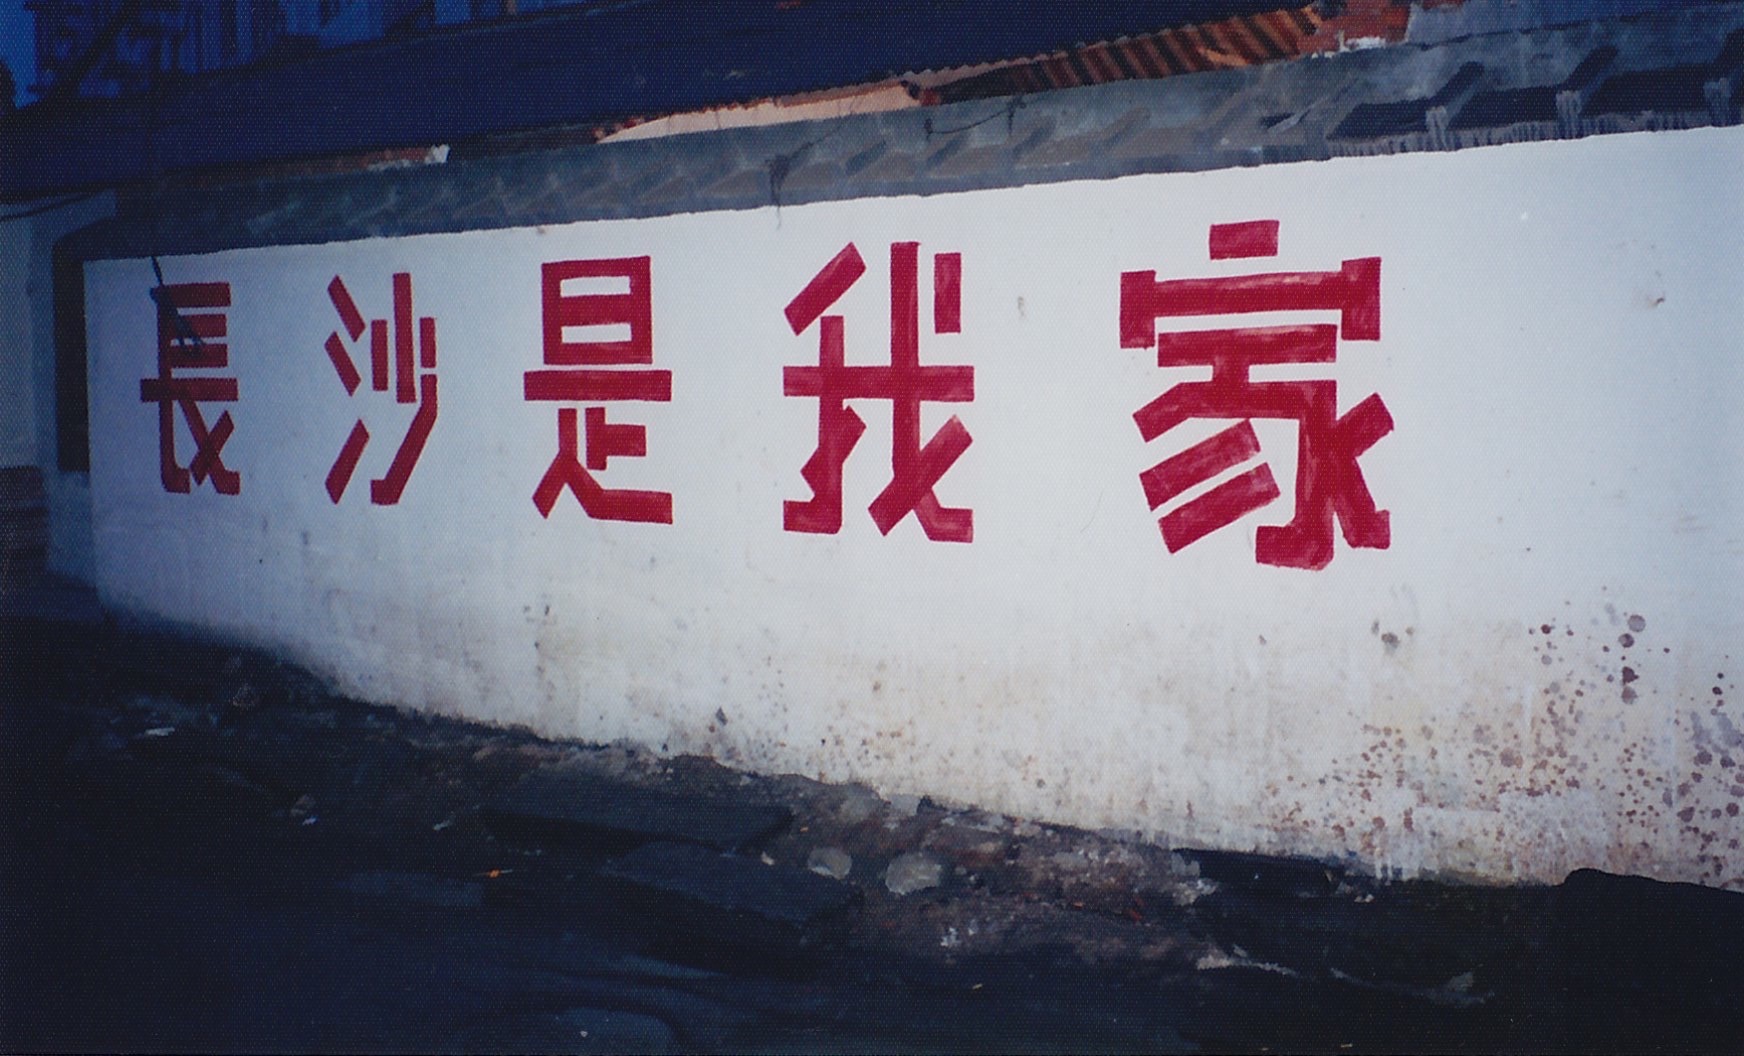 長沙是我家